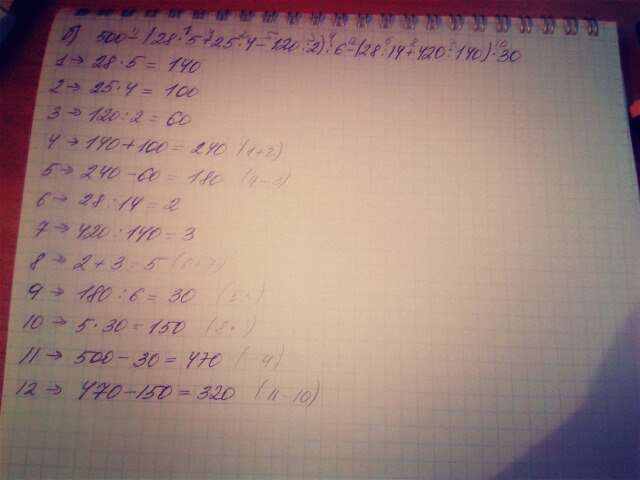 б) 500-(28·5+25·4-120:2):6-(28:14+420:140)·30
1 → 28·5 = 140
2 → 25·4 = 100
3 → 120:2 = 60
4 → 140+100 = 240 (1+2)
5 → 240-60 = 180 (4-3)
6 → 28:14 = 2
7 → 420:140 = 3
8 → 2+3 = 5 (6+7)
9 → 180:6 = 30
10 → 5·30 = 150
11 → 500-30 = 470
12 → 470-150 = 320 (11-10)